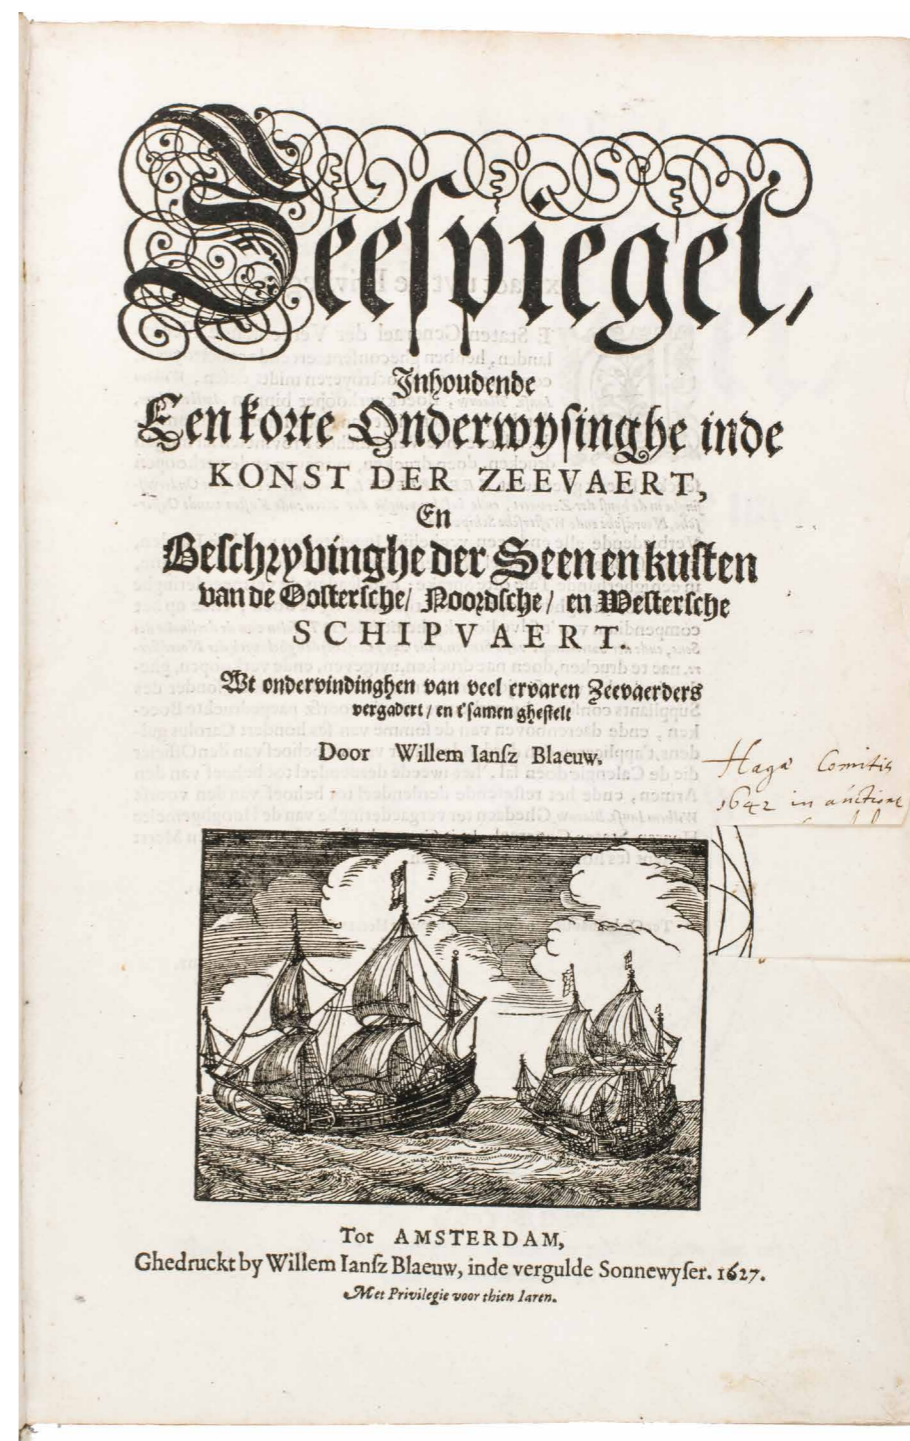 Zeespiegel,
Inhoudende
Een korte Onderwysinghe inde
KONST DER ZEEVAERT,
En
Beschryvinghe der Seen en kusten
van de Oostersche/ Noordsche/ en Westersche
SCHIPVAERT.
Wt ondervindinghen van veel ervaren Zeevaerders
vergadert/ en t'samen ghestelt
Door Willem Ianſz Blaeuw.
Hagæ Comitis
1642 in auctione
Tot AMSTERDAM,
Ghedruckt by Willem Ianſz Blaeuw, inde vergulde Sonnewyſer. 1627.
Met Privilegie voor thien Iaren.